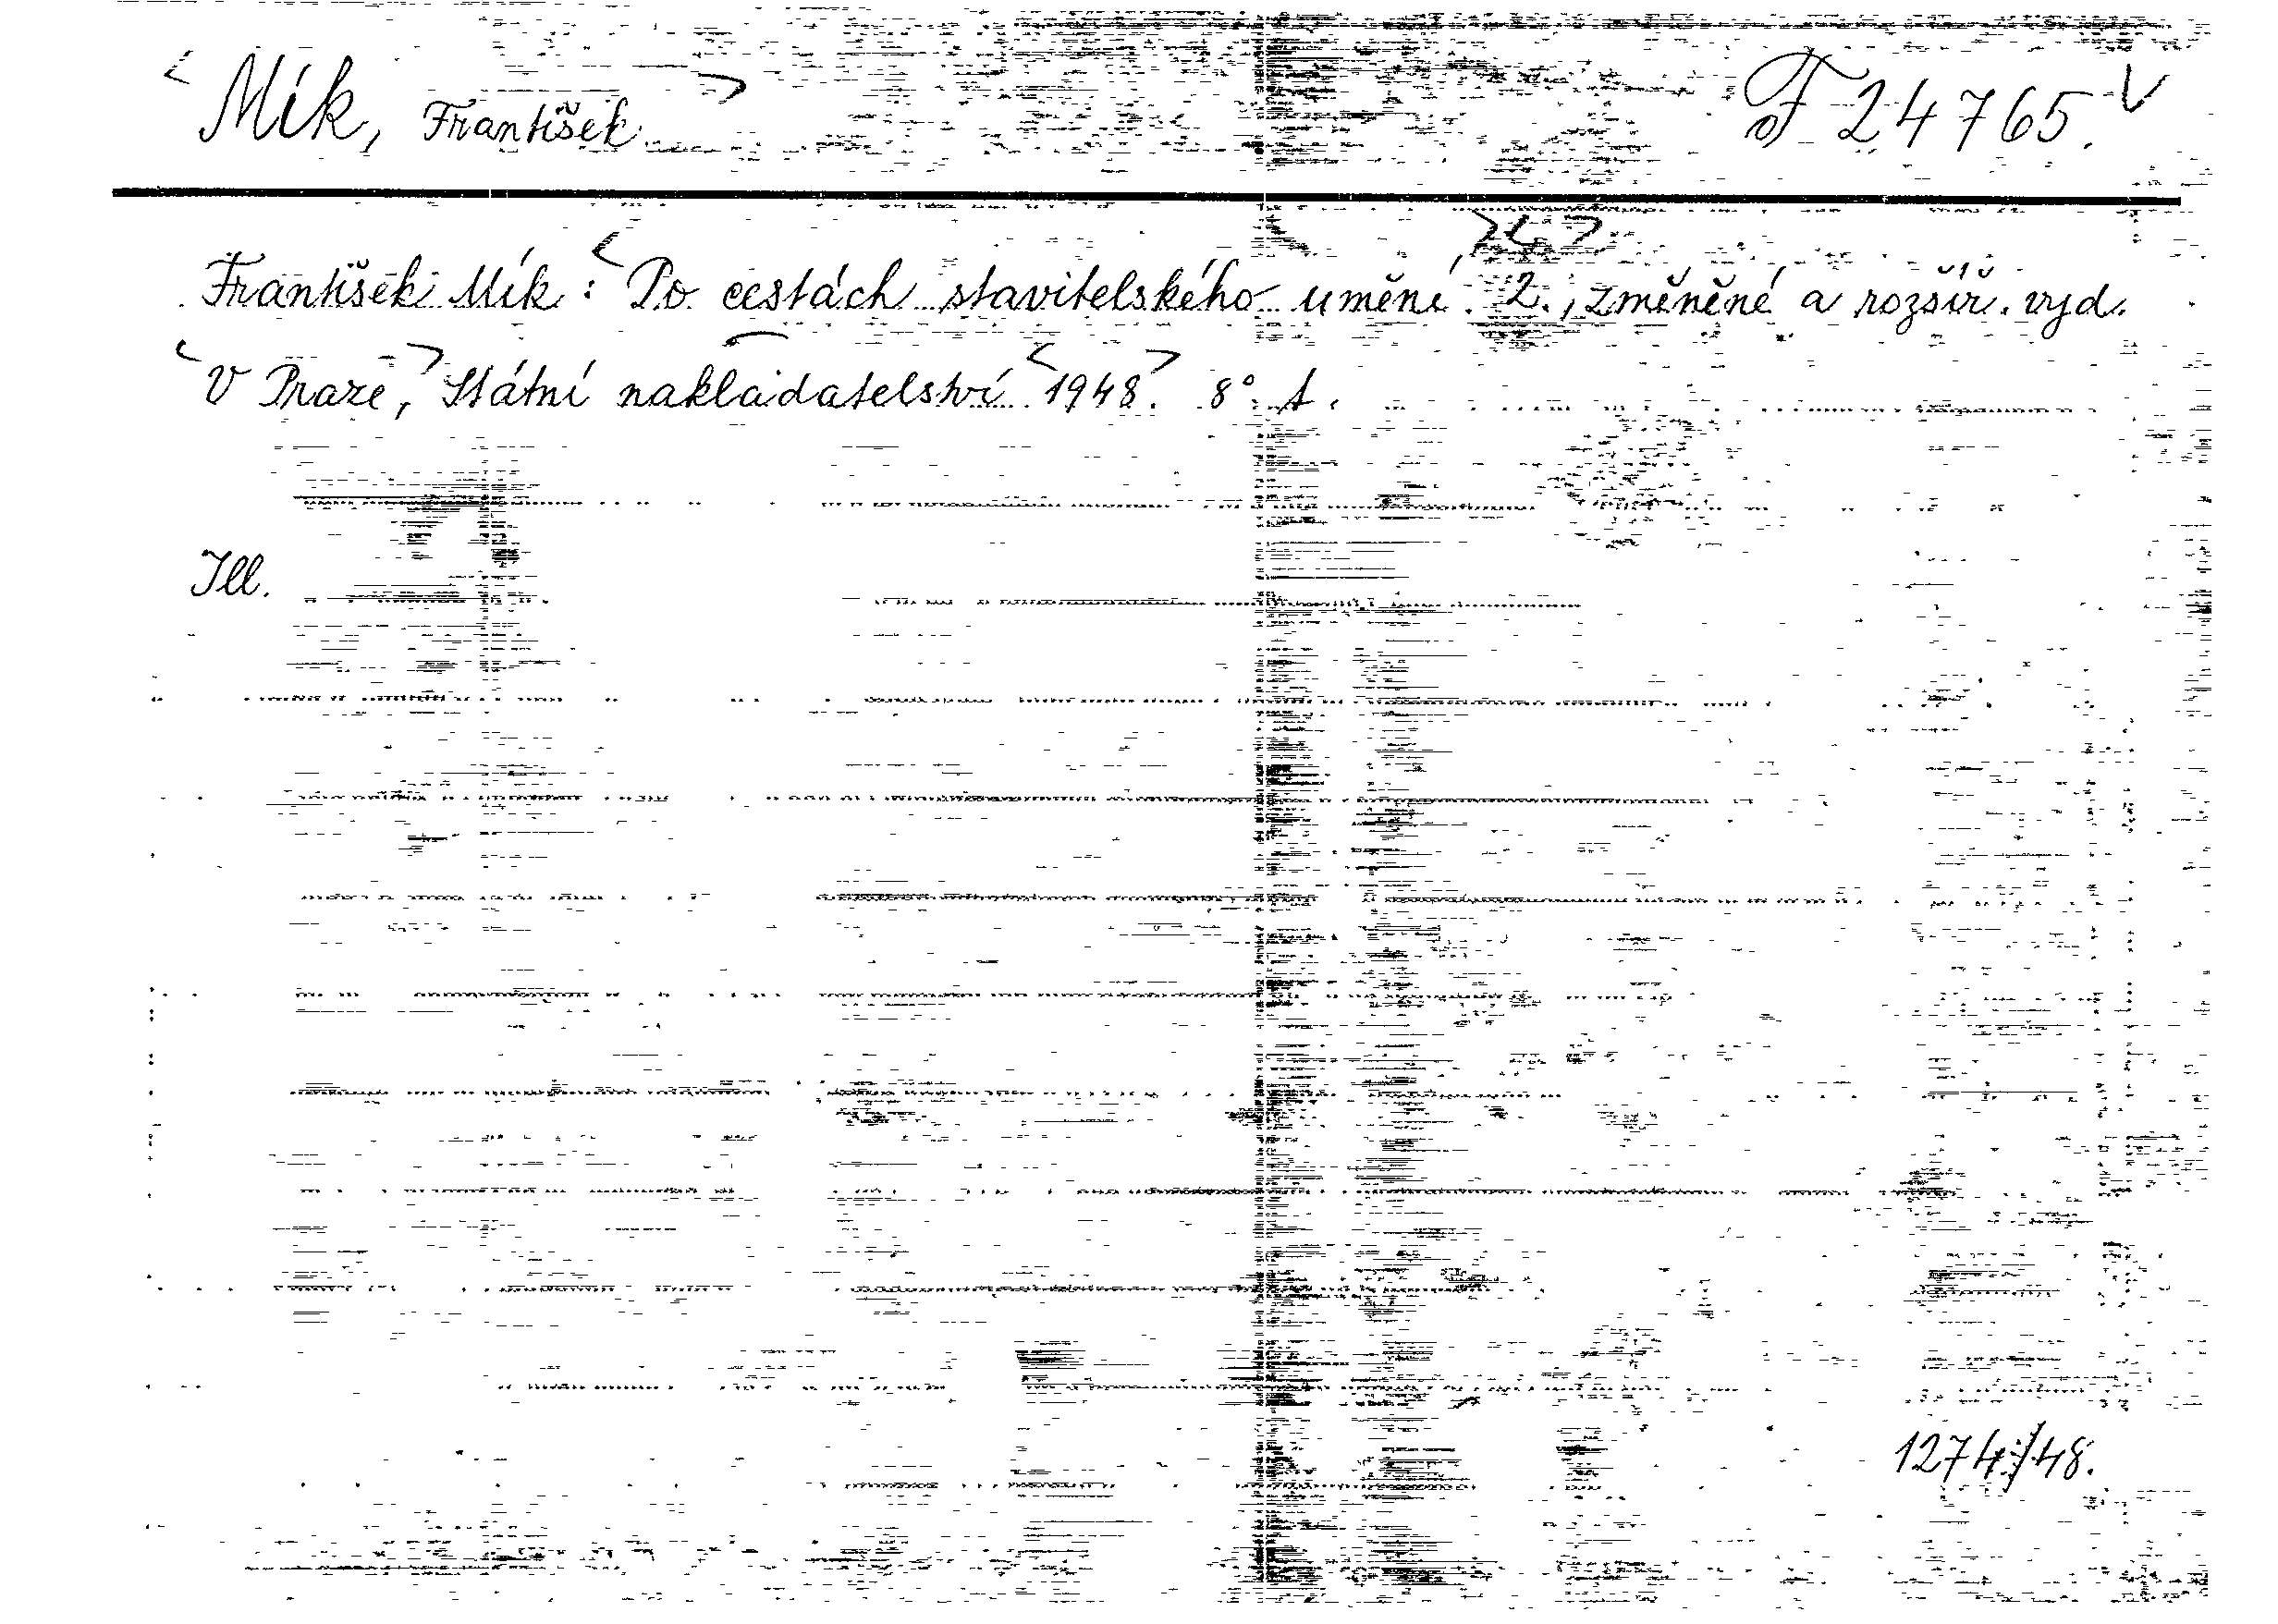 Mík, František F 24765.
František Mík: Po cestách stavitelského umění. 2., změněné a rozšíř. vyd.
V Praze, Státní nakladatelství 1948. 8°.
Ill.
1274/48.